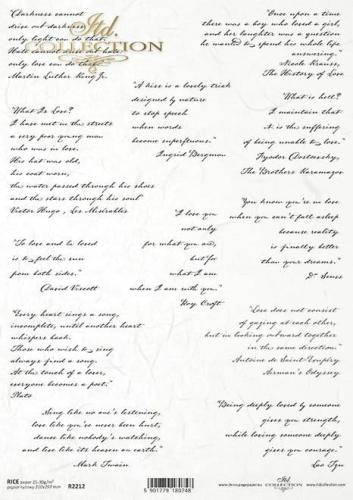 "Darkness cannot
drive out darkness:
only light can do that.
Hate cannot drive out hate:
only love can do this."
Martin Luther King Jr.
Itd.
COLLECTION
"Once upon a time
there was a boy who loved a girl,
and her laughter was a question
he wanted to spend his whole life
answering."
Nicole Krauss,
The History of Love
"A kiss is a lovely trick
designed by nature
to stop speech
when words
become superfluous."
Ingrid Bergman
"What Is Love?
I have met in the streets
a very poor young man
who was in love.
His hat was old,
his coat worn,
the water passed through his shoes
and the stars through his soul"
Victor Hugo, Les Misérables
"What is hell?
I maintain that
it is the suffering
of being unable to love."
Fyodor Dostoevsky,
The Brothers Karamazov
"You know you're in love
when you can't fall asleep
because reality
is finally better
than your dreams."
Dr. Seuss
"I love you
not only
for what you are,
but for
what I am
when I am with you."
Roy Croft
"To love and be loved
is to feel the sun
from both sides."
David Viscott
"Every heart sings a song,
incomplete, until another heart
whispers back.
Those who wish to sing
always find a song.
At the touch of a lover,
everyone becomes a poet."
Plato
"Love does not consist
of gazing at each other,
but in looking outward together
in the same direction."
Antoine de Saint-Exupéry
Airman's Odyssey
"Sing like no one's listening,
love like you've never been hurt,
dance like nobody's watching,
and live like its heaven on earth."
Mark Twain
"Being deeply loved by someone
gives you strength,
while loving someone deeply
gives you courage."
Lao Tzu
RICE paper 25-30g/m²
papier ryżowy 210x297 mm
R2212
5 901779 180748
www.decoupagepaper.eu
Itd.
COLLECTION
www.itdcollection.com